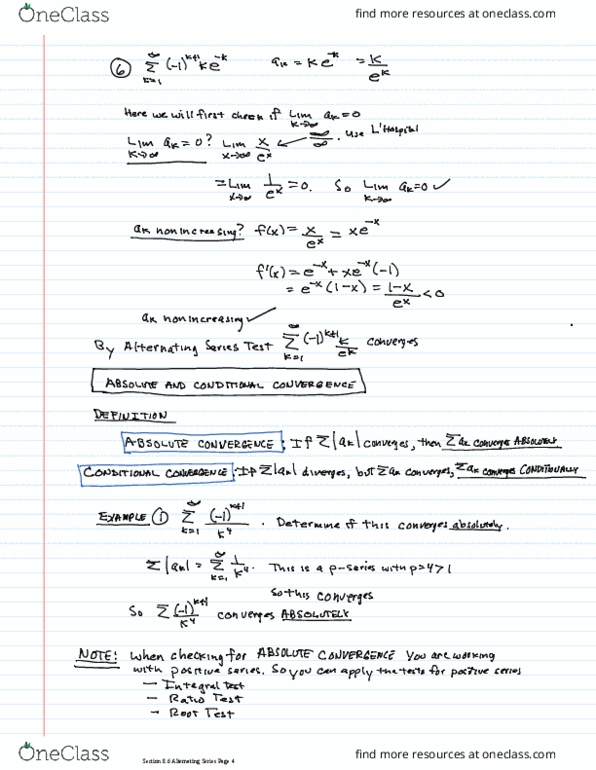 OneClass
find more resources at oneclass.com
⑥ ∑_{k=1}^{∞} (-1)^{k+1} k e^{-k}   a_k = k e^{-k} = k/e^k
Here we will first check if Lim_{k→∞} a_k = 0
Lim_{k→∞} a_k = 0? Lim_{x→∞} x/e^x ← ∞/∞. Use L'Hospital
= Lim_{x→∞} 1/e^x = 0. So Lim_{k→∞} a_k = 0 ✓
a_k nonincreasing? f(x) = x/e^x = xe^{-x}
f'(x) = e^{-x} + xe^{-x}(-1)
= e^{-x}(1-x) = (1-x)/e^x < 0
a_k nonincreasing ✓
By Alternating Series Test ∑_{k=1}^{∞} (-1)^{k+1} k/e^k converges
ABSOLUTE AND CONDITIONAL CONVERGENCE
DEFINITION
ABSOLUTE CONVERGENCE: If ∑|a_k| converges, then ∑a_k converges ABSOLUTELY
CONDITIONAL CONVERGENCE: If ∑|a_k| diverges, but ∑a_k converges, ∑a_k converges CONDITIONALLY
EXAMPLE ① ∑_{k=1}^{∞} (-1)^{k+1}/k^4. Determine if this converges absolutely.
∑|a_k| = ∑_{k=1}^{∞} 1/k^4. This is a p-series with p=4>1
So this converges
So ∑ (-1)^{k+1}/k^4 converges ABSOLUTELY
NOTE: When checking for ABSOLUTE CONVERGENCE you are working
with positive series. So you can apply the tests for positive series
— Integral test
— Ratio Test
— Root Test
Section 8.6 Alternating Series Page 4
OneClass
find more resources at oneclass.com